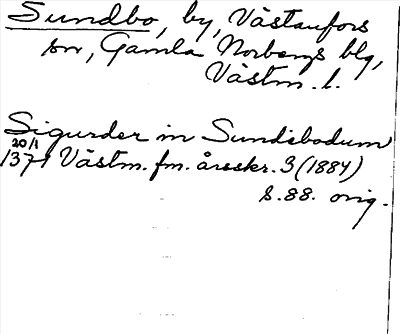 Sundbo, by, Västanfors
sn, Gamla Norbergs blg,
Västm. l.
Sigurder in Sundsbodum
20/1
1371 Västm. fm. årsskr. 3 (1884)
s. 88. orig.